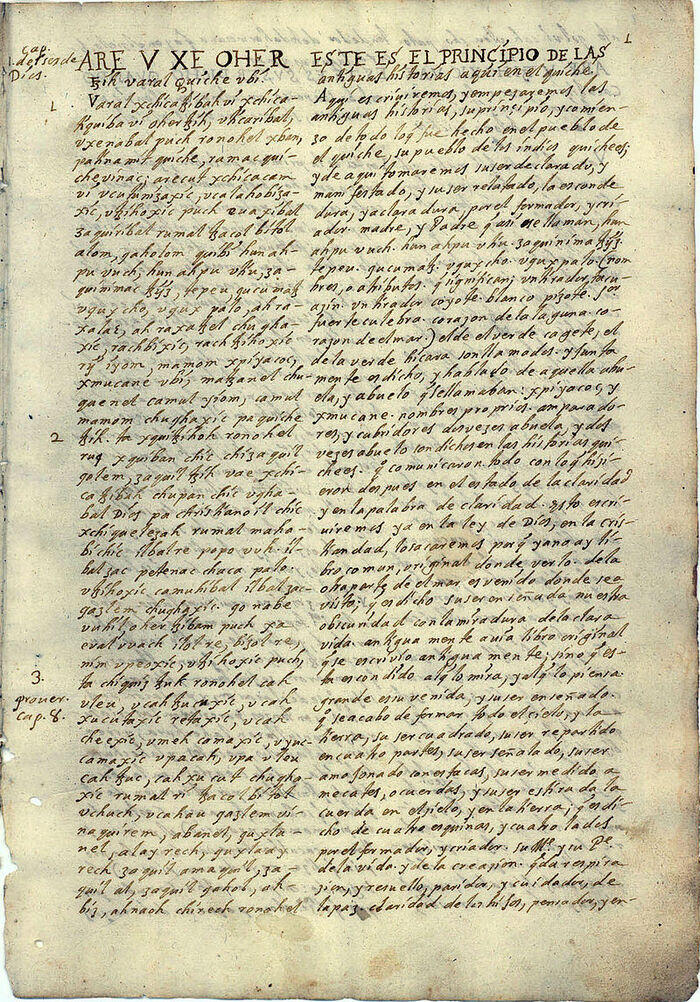 Cap.
1. de ser de
Dios.
1
2
3.
prouer.
cap. 8.
ARE V XE OHER
ꜩih varal Quiche vbi.
Varal xchicaꜩibah vi xchica-
tiquiba vi oher ꜩih, vticaribal,
vxenabal puch ronohel xban,
pa tinamit quiche, ramac qui-
che vinac; arecut xchicacam
vi vcutunizaxic, vcalahobiza-
xic, vꜩihoxic puch euaxibal
zaquiribal rumal ꜩacol bitol
alom, qaholom quibi hunah-
pu vuch, hunahpu vtiu, za-
quinimac ꜩyz, tepeu qucumatz
vqux cho, vqux palo, ah ra-
xalac, ah raxatzel chugha-
xic, rachbixic, rachꜩihoxic
rij iyom, mamom xpiyacoc,
xmucane vbi, matzanel chu-
quenel camul yiom, camul
mamom chughaxic pa quiche
ꜩih. ta xquitzihoh ronohel
ruq xquiban chic chi zaquil
qolem, zaquil ꜩih vae xchi-
caꜩibah chupan chic vgha-
bal Dios pa christianoil chic
xchiquelezah rumal maha-
bi chic ilbal re popo vuh, il-
bal zac petenac chaca palo.
vꜩihoxic camuhibal ilbal zac-
qazlem chughaxic. qo nabe
vuhil oher ꜩibam puch xa
eval vvach ilol re, bizol re,
nim vpeoxic, vꜩihoxic puch,
ta chiquiz ꜩuk ronohel cah
vleu, vcah ꜩucuxic, vcah
xucutaxic retaxic, vcah
cheexic, vmeh camaxic, vyuc-
camaxic vpa cah, vpa vleu
cah ꜩuc, cah xucut chugho-
xic rumal ri ꜩacol bitol
vchuch, vcahau qazlem vi-
naquirem, abanel, quxla-
nel, alay rech, quxlaay
rech zaquil amaquil, za-
quil al, zaquil qahol, ah-
biz, ahnaoh chirech ronohel
1
ESTE ES EL PRINCIPIO DE LAS
antiguas historias aqui en el quiché.
Aqui escriviremos, y empezaremos las
antiguas historias, su principio, y comien-
zo de todo lo q̃ fue hecho en el pueblo de
el quiche, su pueblo de los indios quichees;
y de aqui tomaremos su ser declarado, y
manifestado, y su ser relatado, la esconde
dura, y aclaradura, por el formador, y cri-
ador. madre, y Padre q̃ asi se llaman, hun
ahpu vuch. hun ahpu vtiu. zaquinima ꜩÿz.
tepeu. qucumatz. vqux cho. vqux palo. (nom
bres, o atributos. q̃ significan; vn tirador tacu-
azin. vn tirador coyote. blanco pizote.
fuerte culebra. corazon de la laguna. co-
razon de el mar.) el de el verde cagete, el
de la verde hicara son llamados. y junta
mente es dicho, y hablado de aquella abu-
ela, y abuelo q̃ se llamaban: xpiyacoc, y
xmucane. nombres proprios. amparado-
res, y cubridores dos vezes abuela, y dos
vezes abuelo son dichos en las historias qui-
chees. q̃ comunicaron todo con lo q̃ hiji-
eron despues en el estado de la claridad
y en la palabra de claridad. Esto escri-
uiremos ya en la ley de Dios, en la cris-
tiandad, lo sacaremos porq̃ ya no ay li-
bro comun, original donde verlo. de la
otra parte de el mar es venido donde se a
visto; q̃ es dicho su ser enseñada nuestra
obscuridad con la miradura de la clara
vida. antiguamente auia libro original
q̃ se escrivio antiguamente; sino q̃ es-
ta escondido al q̃ lo mira, y al q̃ lo piensa.
grande es su venida, y su ser enseñado.
q̃ se acabo de formar todo el cielo, y la
tierra, su ser cuadrado, su ser repartido
en cuatro partes, su ser señalado, su ser
amojonado con estacas, su ser medido a
mecates, o cuerdas, y su ser estirada la
cuerda en el sielo, y en la tierra; q̃ es di-
cho de cuatro esquinas, y cuatro lados
por el formador, y criador. su Mᵉ. y su Pᵉ
de la vida. y de la creazion. q̃ da respira-
sion, y resuello, paridor, y cuidador, de
la paz. claridad de los hijos, pensador, y en-